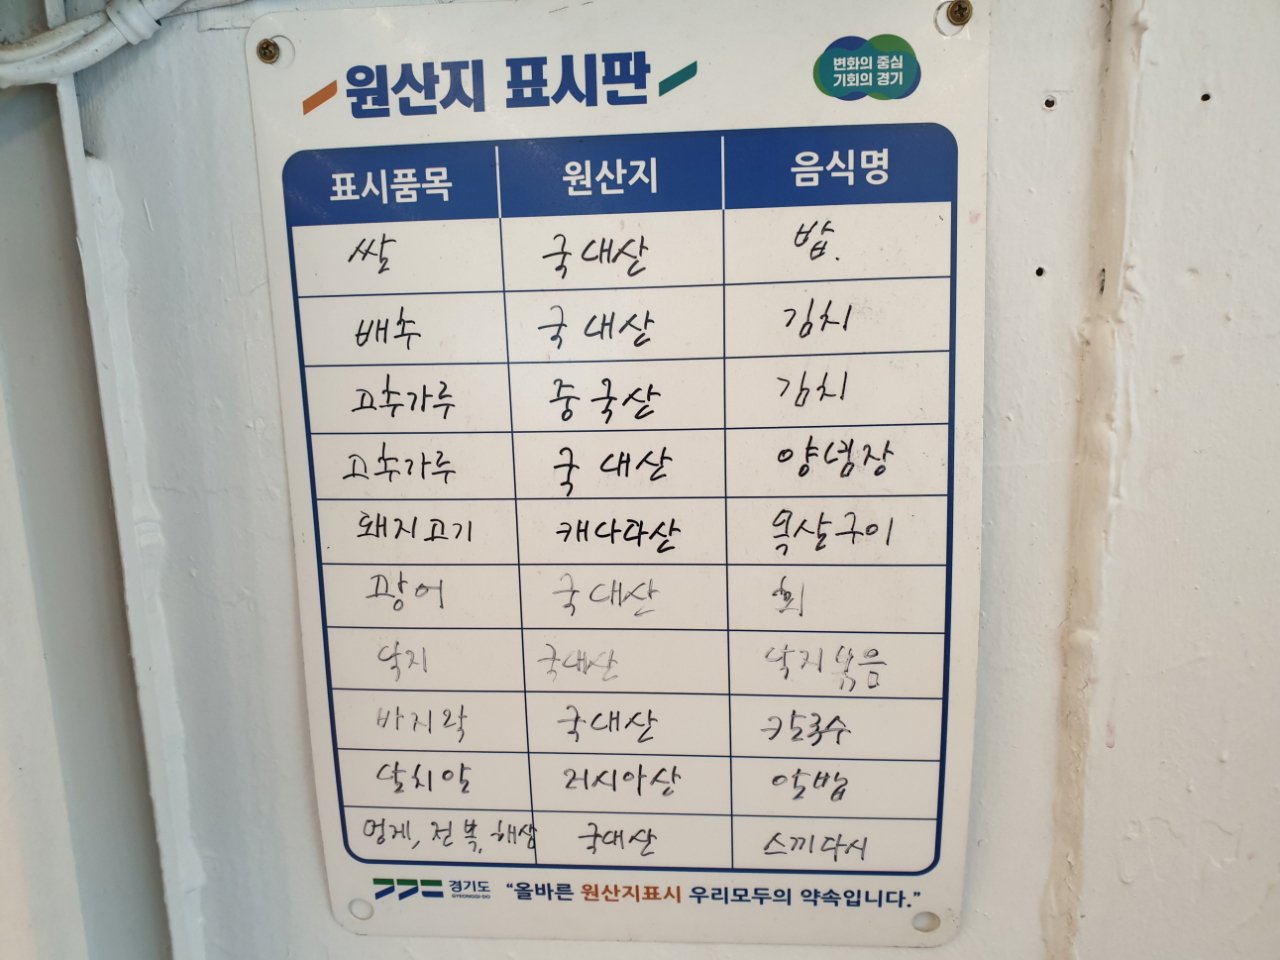 원산지 표시판
변화의 중심
기회의 경기
표시품목 원산지 음식명
쌀 국대산 밥.
배추 국대산 김치
고추가루 중국산 김치
고추가루 국대산 양념장
돼지고기 캐나다산 목살구이
광어 국대산 회
낙지 국대산 낙지볶음
바지락 국대산 칼국수
날치알 러시아산 알밥
멍게, 전복, 해삼 국대산 스끼다시
경기도 GYEONGGI-DO “올바른 원산지표시 우리모두의 약속입니다.”